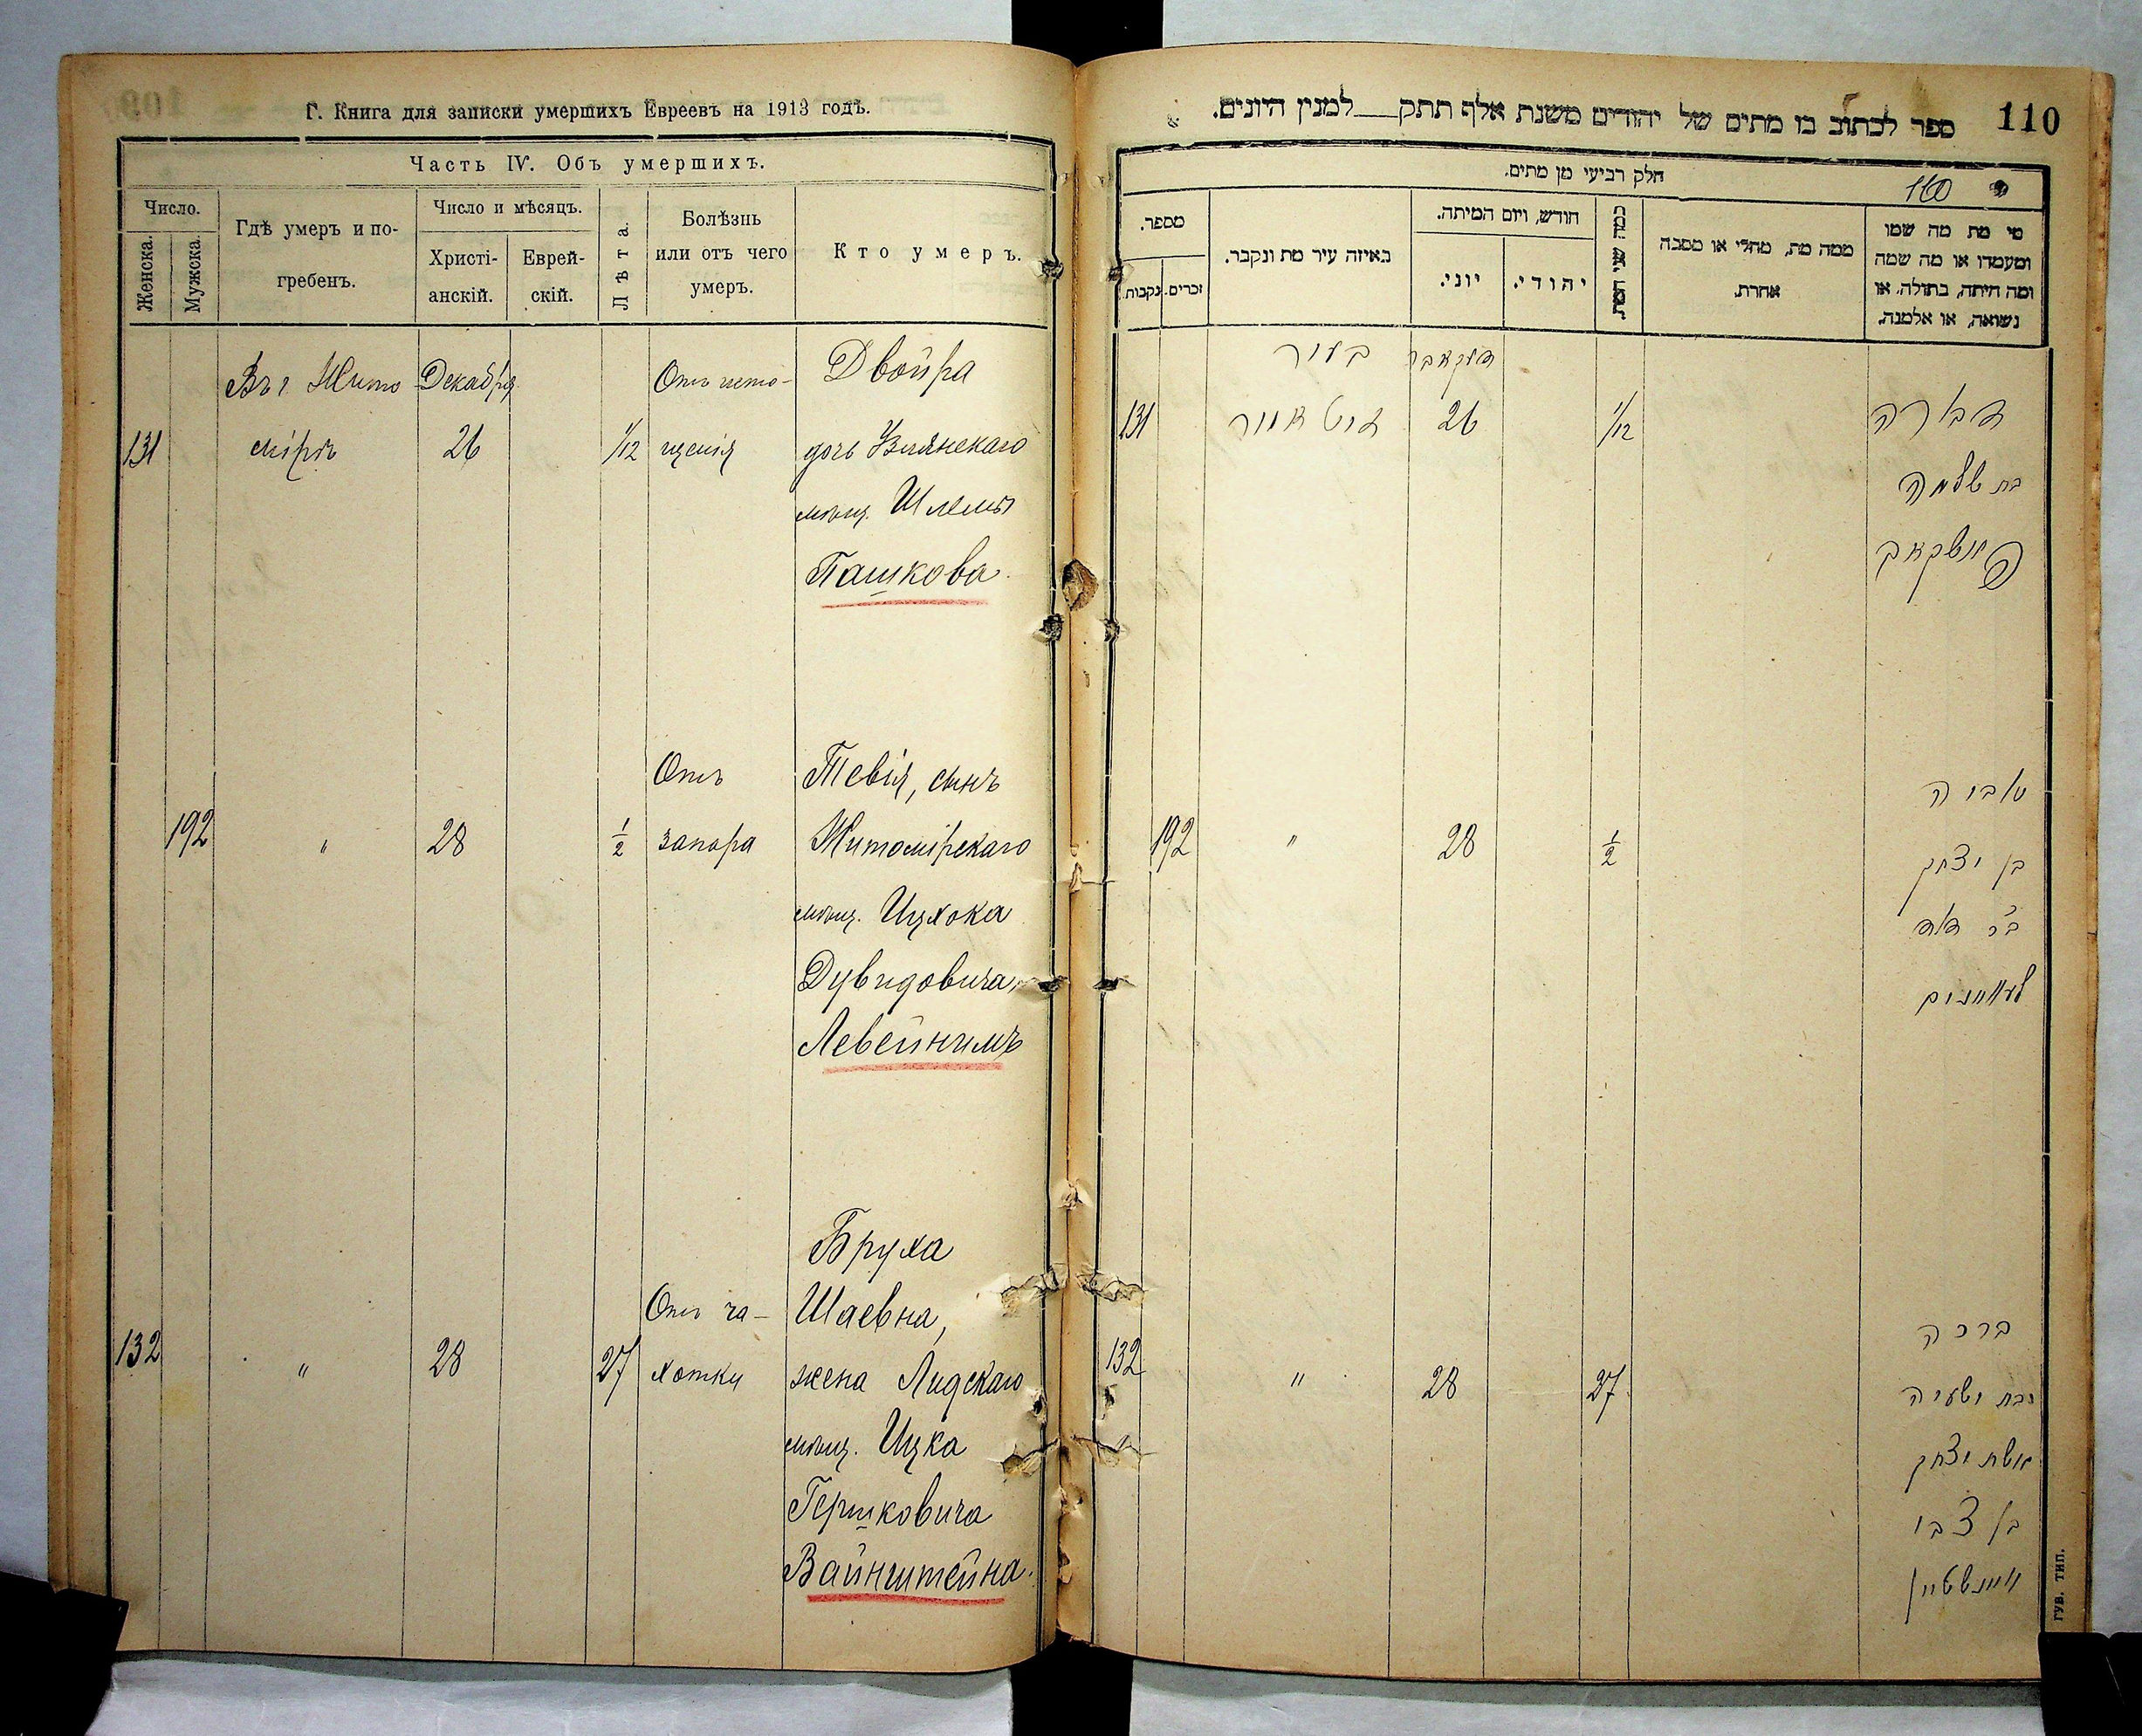 Г. Книга для записки умершихъ Евреевъ на 1913 годъ.
Часть IV. Объ умершихъ.
Число.
Женска.
Мужска.
Гдѣ умеръ и по-
гребенъ.
Число и мѣсяцъ.
Христі-
анскій.
Еврей-
скій.
Лѣта.
Болѣзнь
или отъ чего
умеръ.
Кто умеръ.
131
Въ г. Жито
мірѣ
Декабря
26
1/12
Отъ исто-
щенія
Двойра
дочь
мѣщ. Шлемы
Пашкова.
192
"
28
1/2
Отъ
запора
Тевія, сынъ
Житомірскаго
мѣщ. Ицхока
Дувидовича
Левейнимъ
132
"
28
27
Отъ ча-
хотки
Бруха
Шаевна,
жена Лидскаго
мѣщ. Ицка
Гершковича
Вайнштейна.
110
ספר לכתוב בו מתים של יהודים משנת אלף תתק למנין היונים.
חלק רביעי מן מתים.
160
מספר.
זכרים.
נקבות.
באיזה עיר מת ונקבר.
חודש, ויום המיתה.
יוני.
יהודי.
כמה שני המת.
ממה מת, מחלי או מסבה
אחרת.
מי מת מה שמו
ומעמדו או מה שמה
ומה היתה, בתולה, או
נשואה, או אלמנה.
131
בעיר
זיטאמיר
דעקאבר
26
1/12
דבורה
בת שלמה
פאשקאב
192
"
28
1/2
טביה
בן יצחק
ב"ר דוד
לעוויינים
132
"
28
27
ברכה
בת ישעיה
אשת יצחק
בן צבי
וויינשטיין
гув. тип.